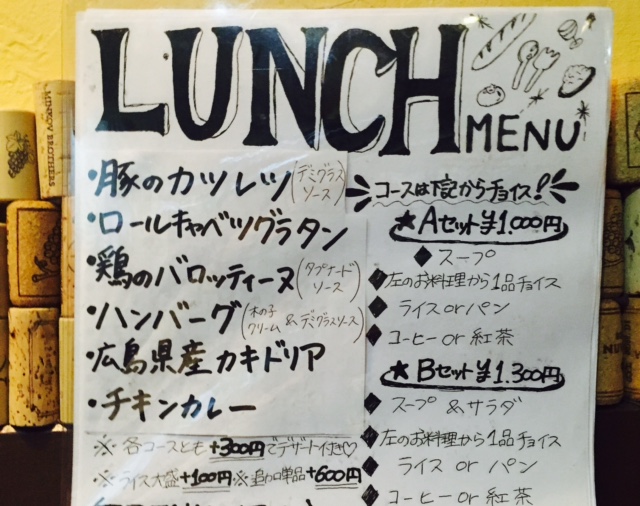 LUNCH
MENU
・豚のカツレツ(デミグラスソース)
・ロールキャベツグラタン
・鶏のバロッティーヌ(タプナードソース)
・ハンバーグ(木の子クリーム&デミグラスソース)
・広島県産カキドリア
・チキンカレー
※各コースとも+300円でデザート付き♡
※ライス大盛+100円※追加単品+600円
コースは下記からチョイス!
★Aセット¥1.000円
◆スープ
◆左のお料理から1品チョイス
◆ライスorパン
◆コーヒーor紅茶
★Bセット¥1.300円
◆スープ&サラダ
◆左のお料理から1品チョイス
◆ライスorパン
◆コーヒーor紅茶
MINKOV BROTHERS